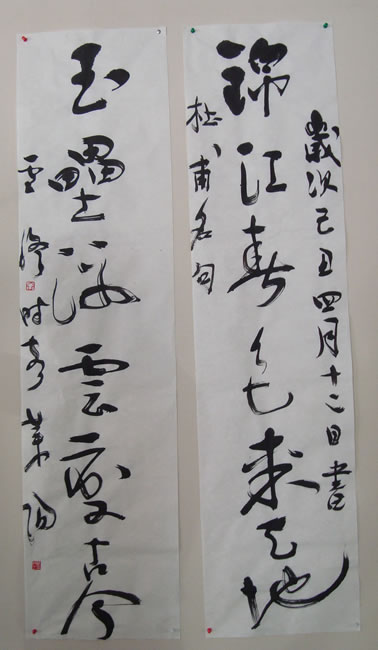 歲次己丑四月十二日書
錦江春色來天地
杜甫名句
玉壘浮雲變古今
時客萊陽